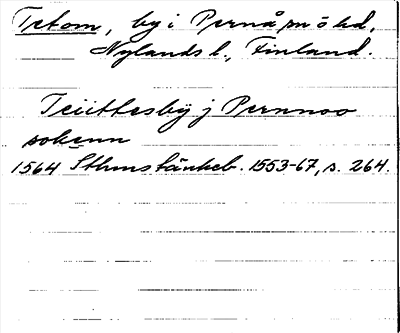 Tetom, by i Pernå sn ö hd,
Nylands l., Finland.
Teiittesby j Pernnoo
sokenn
1564 Sthms tänkeb. 1553-67, s. 264.